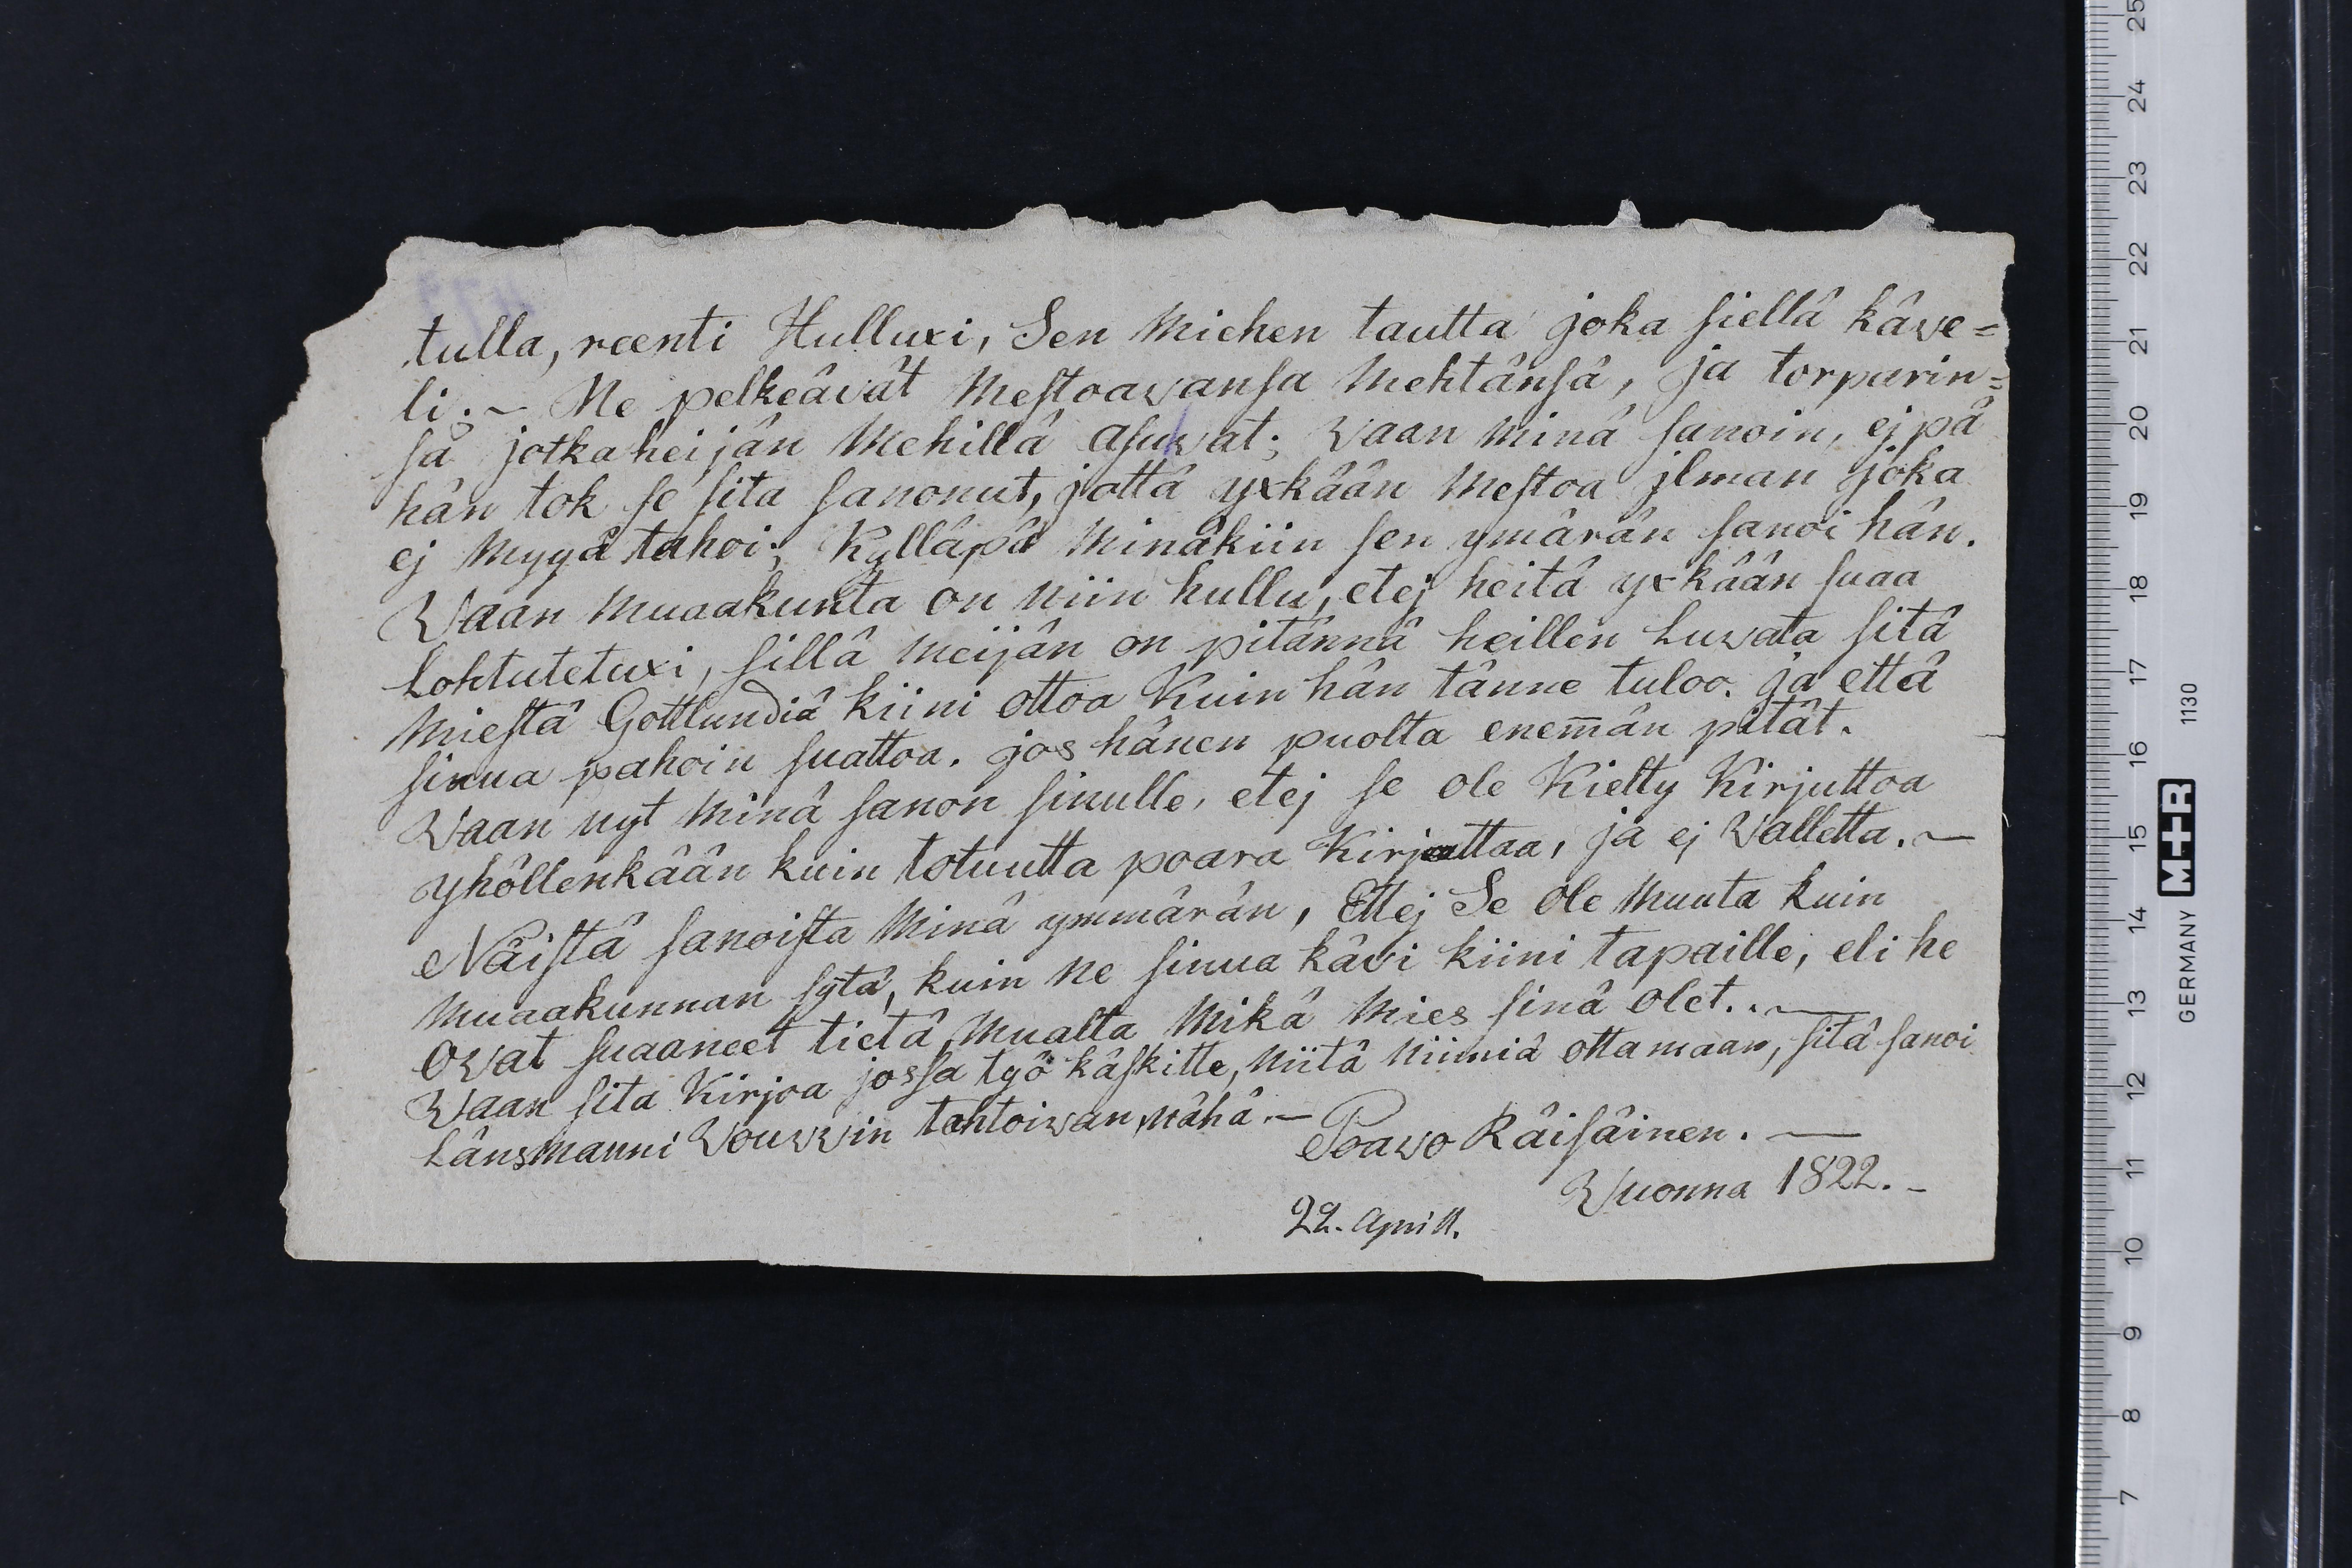 tulla, reenti Hulluxi, Sen Miehen tautta joka siellâ kâwe=
li. ~ Ne pelkeâvât Mestoawansa Mehtânsâ, ja torparin=
sa jotka heijân Mehillâ Asuwat; Vaan Minâ sanoin, ej pâ
hân tok se sita sanonut, jottâ yxkâân Mestoa jlman joka
ej Myyâ tahoi; Kyllâpâ Minâkiin sen ymârân sanoi hân.
Vaan Muaakunta on niin hullu, etej heitâ yxkâân suaa
Lohtutetuxi, sillâ Meijân on pitânnâ heillen Luwata sitâ
Miestâ Gottlundiâ kiini ottoa Kuin hân tânne tuloo. ja ettâ
sinua pahoin suattoa. jos hânen puolta enem̅ân pitât.
Vaan nyt Minâ sanon sinulle, etej se ole Kielty Kirjuttoa
yhöllenkâân kuin totuutta poara Kirjuttaa, ja ej Valletta. ~
Nâistâ sanoista Minâ ymmârân, Ettej Se Ole Muuta kuin
Muaakunnan sytâ, kuin ne sinua kâvi kiini tapaille, eli he
Ovat suaaneet tietâ Mualta Mikâ Mies sinâ Olet. . ~
Vaan sita Kirjoa jossa työ kâskitte, niitâ niimiâ ottamaan, sitâ sanoi
Lânsmanni Vouwwin tahtoiwan nâhâ. —
Poavo Râisâinen. —
Vuonna 1822. -
22. Aprill.
25
24
23
22
21
20
19
18
17
16
15
14
13
12
11
10
9
8
7
GERMANY M+R 1130